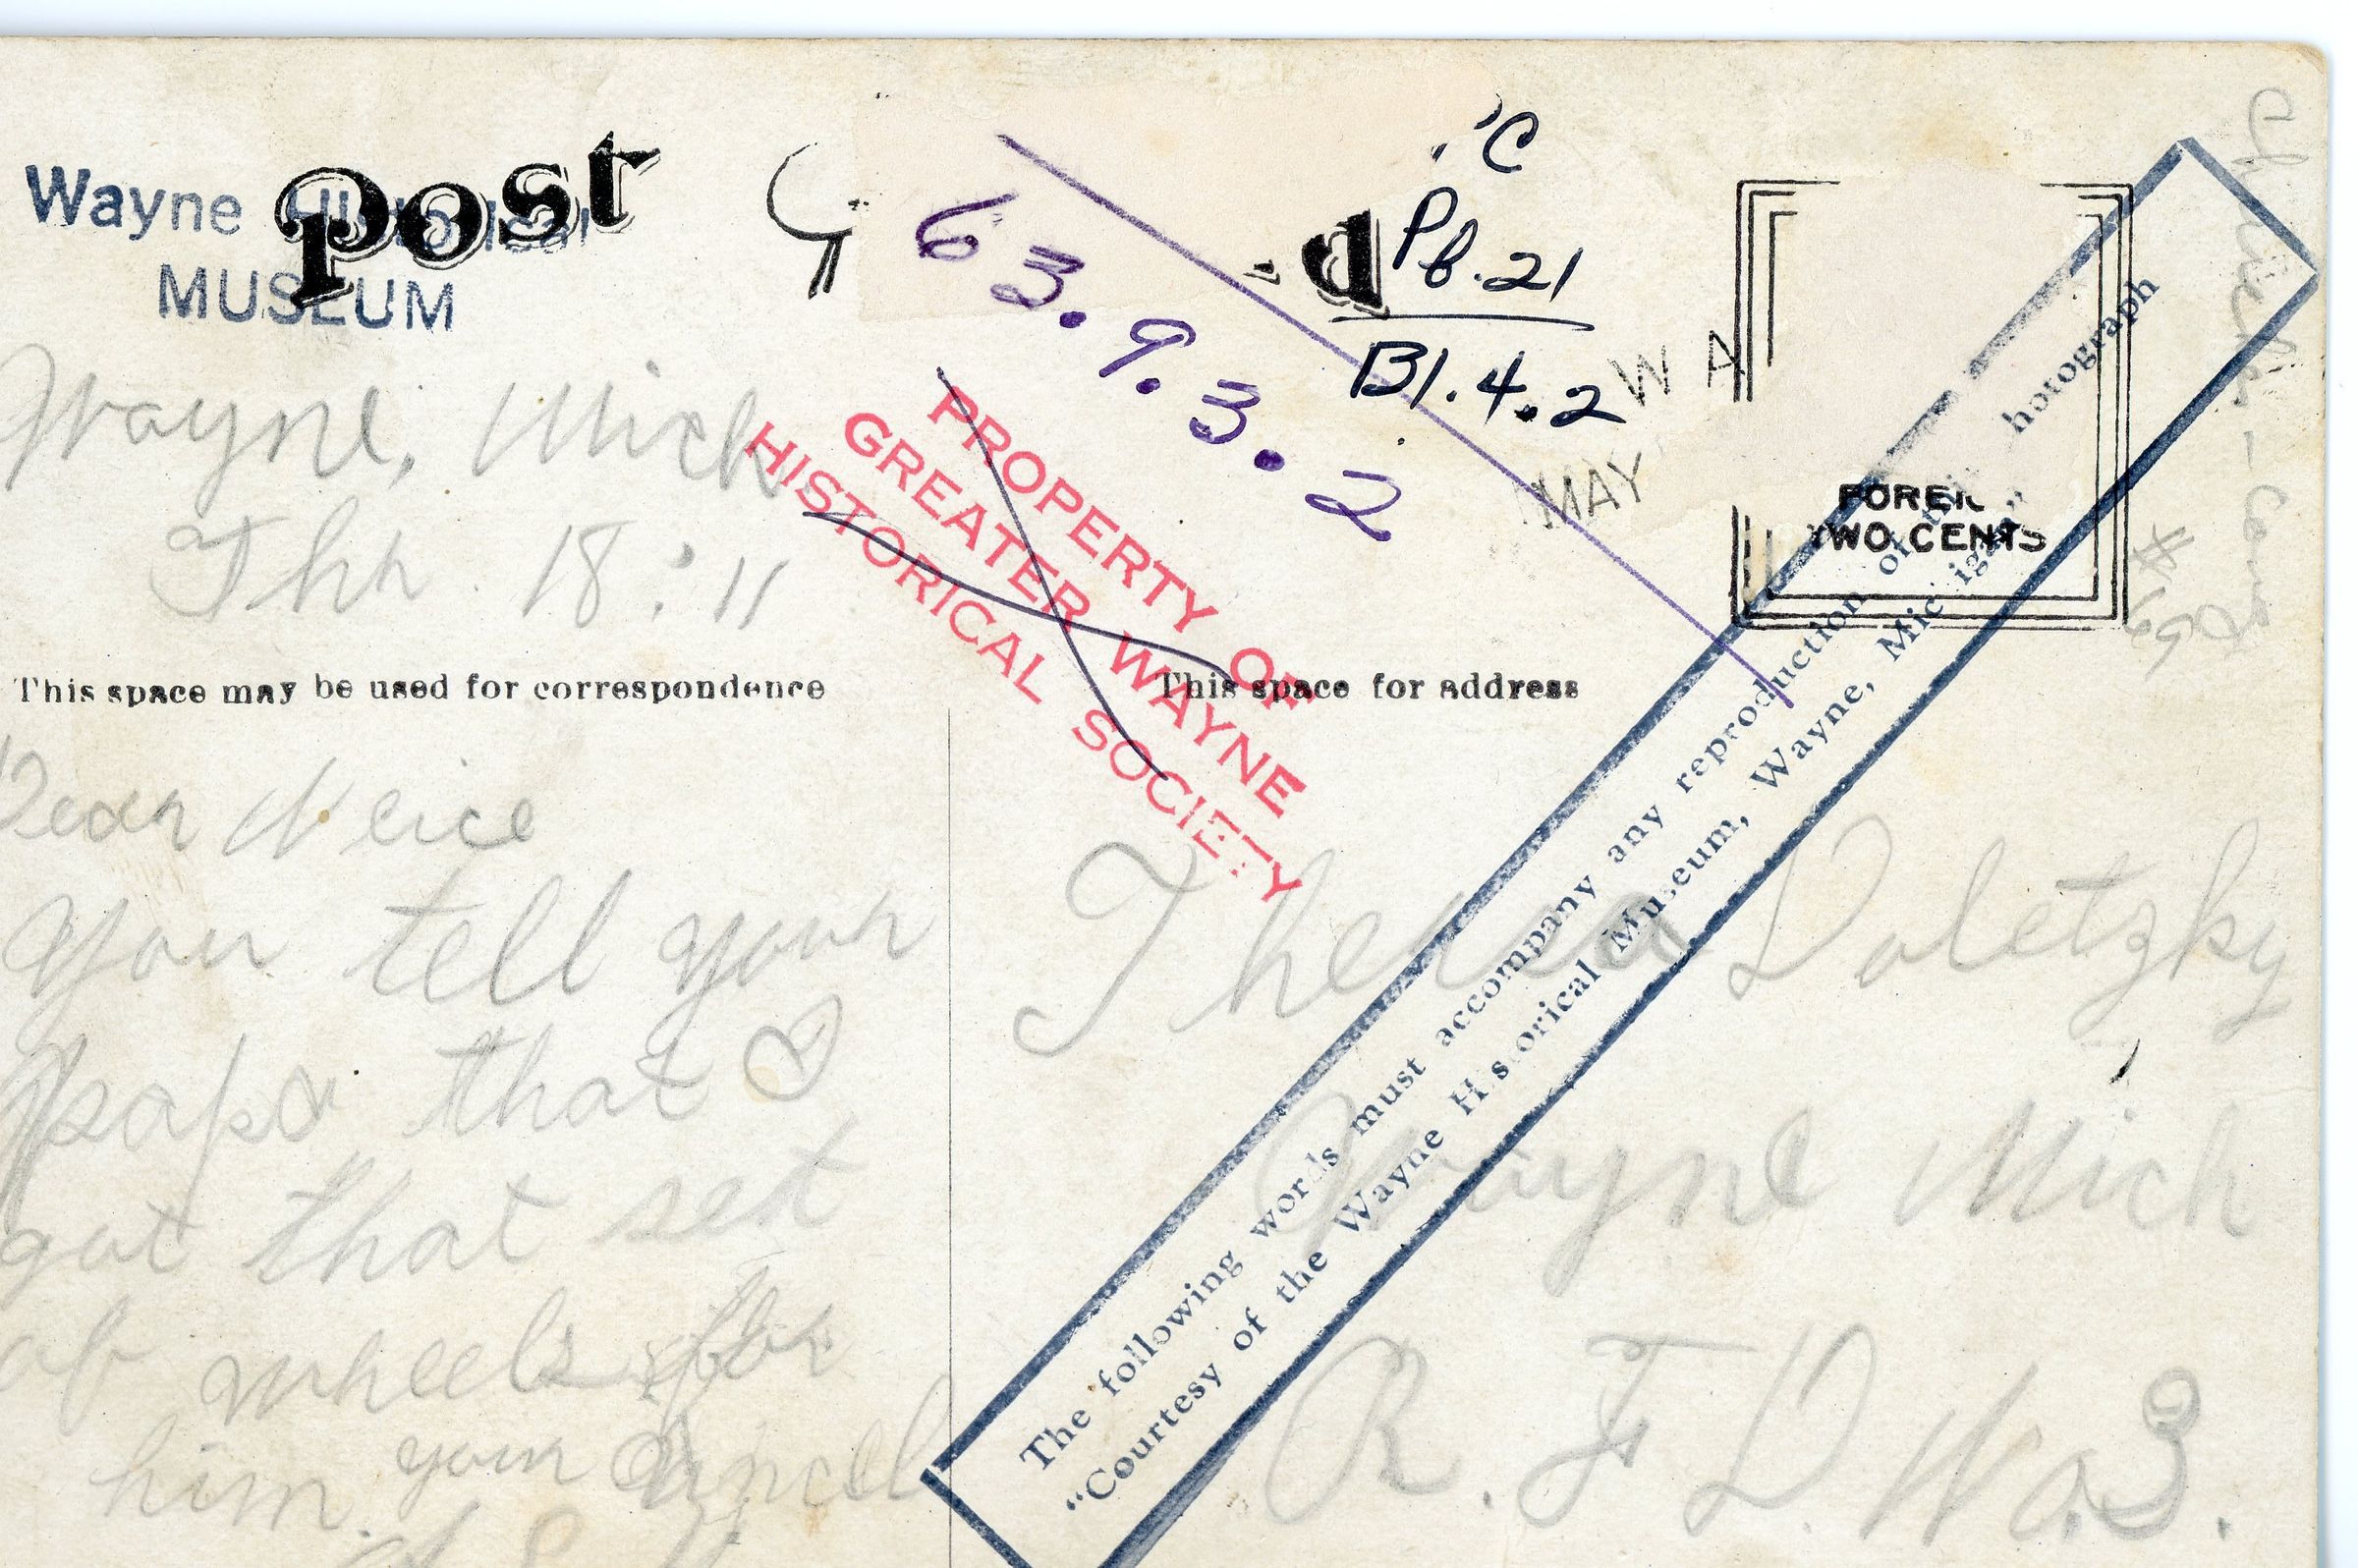 Wayne Historical
MUSEUM
Post
C
d
'C
Pb.21
Bl.4.2
63.9.3.2
W A
MAY
FOREIG
TWO CENTS
PROPERTY OF
GREATER WAYNE
HISTORICAL SOCIETY
Wayne, Mich.
18 : 11
This space may be used for correspondence
This space for address
Dear Neice
you tell your
papa that I
got that set
of wheels for
him. your Uncel
Theresa Doletzky
Wayne Mich
R. F D. No. 3.
The following words must accompany any reproduction of this photograph
"Courtesy of the Wayne Historical Museum, Wayne, Michigan"